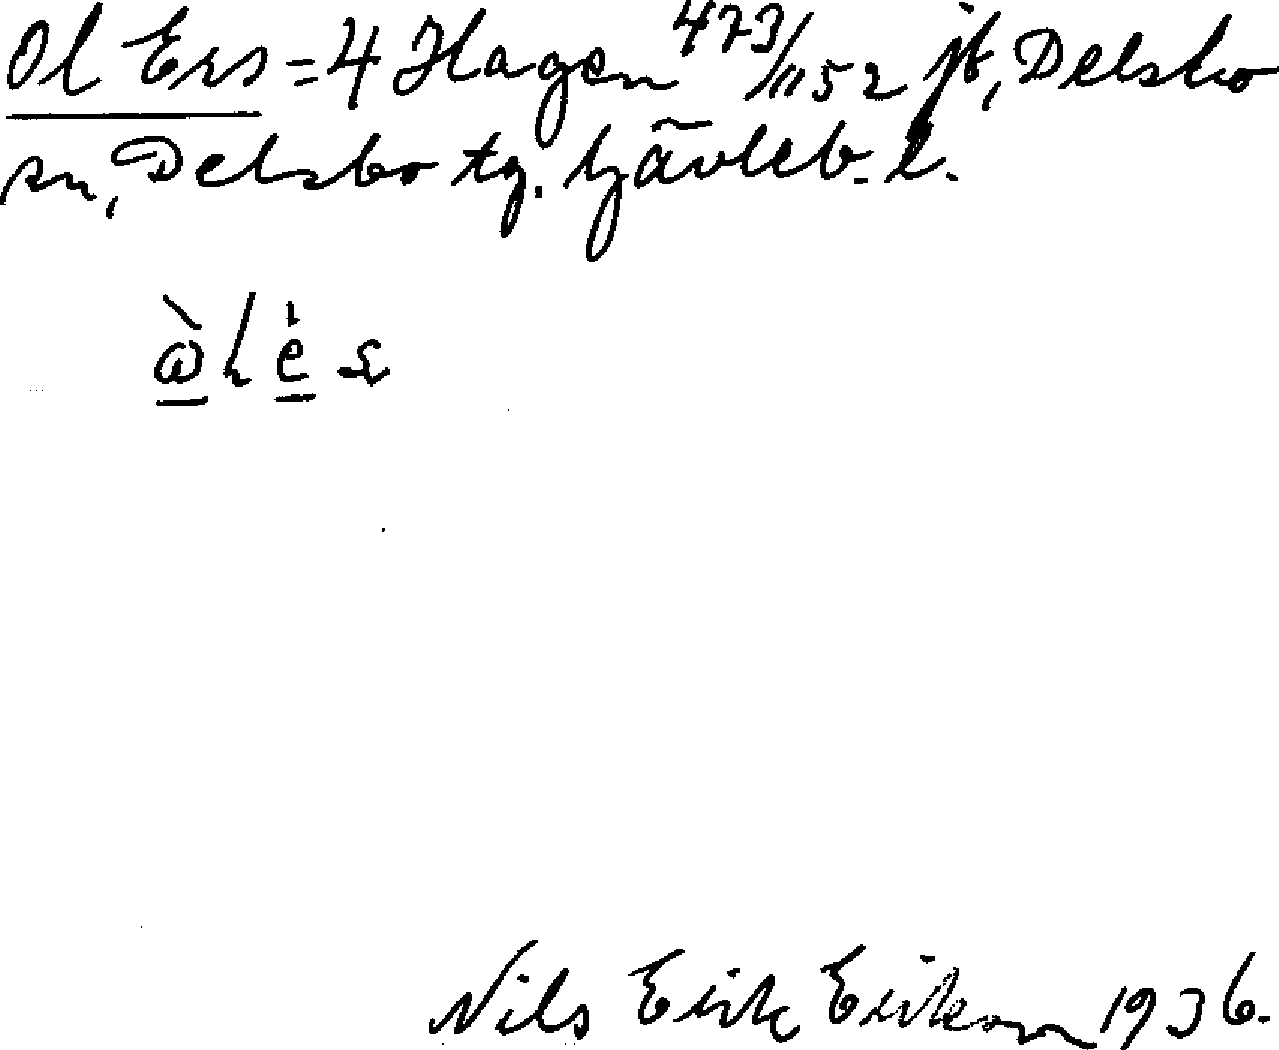 Ol Ers = 4 Hagen 473/1152 jb, Delsbo
sn, Delsbo tg. Gävleb. l.
Nils Erik Erikson 1936.